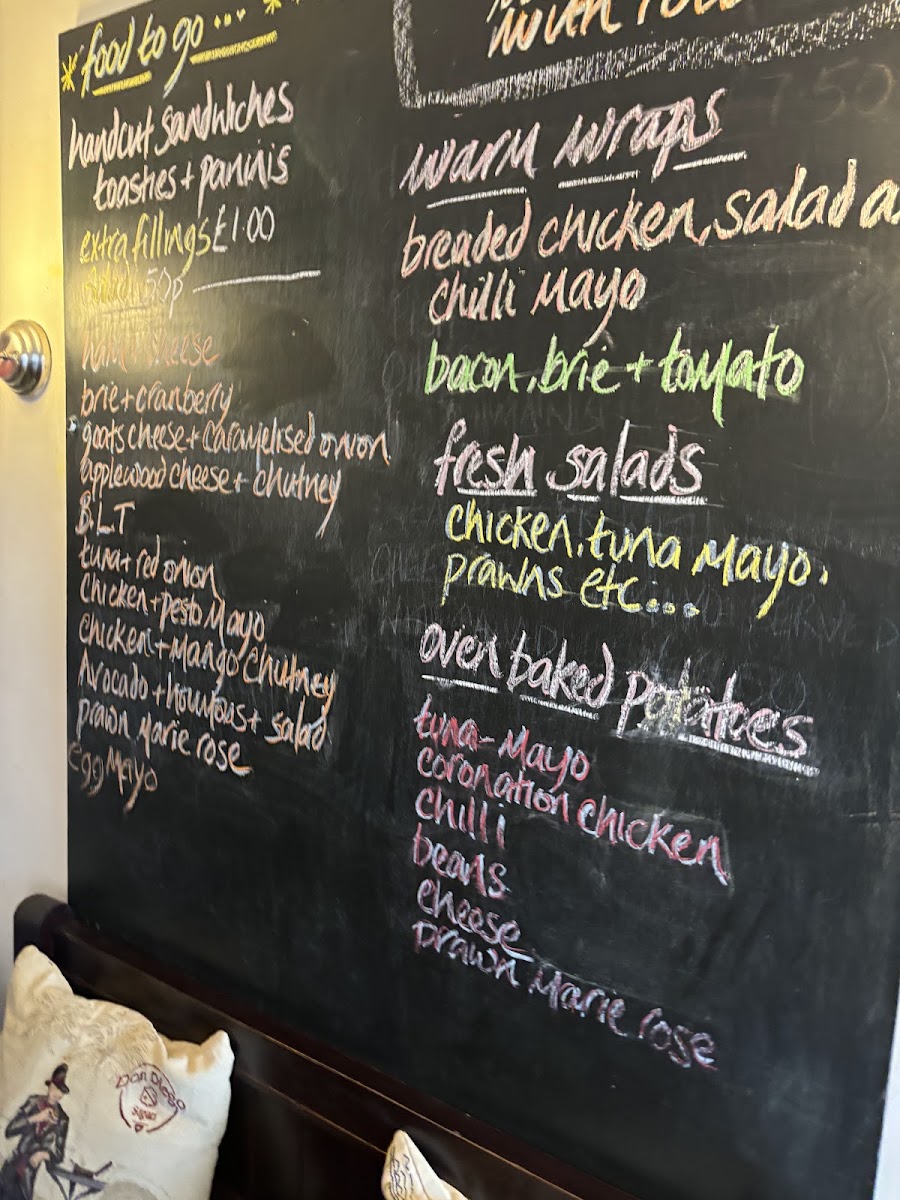 food to go...
handcut sandwiches
toasties + paninis
extra fillings £1.00
salad 50p
ham + cheese
brie + cranberry
goats cheese + caramelised onion
applewood cheese + chutney
B.L.T
tuna + red onion
chicken + pesto Mayo
chicken + Mango chutney
Avocado + houmous + salad
prawn Marie rose
egg Mayo
with
warm wraps
breaded chicken, salad
chilli Mayo
bacon, brie + tomato
fresh salads
chicken, tuna Mayo,
prawns etc...
oven baked potatoes
tuna - Mayo
coronation chicken
chilli
beans
cheese
prawn Marie rose
Don Diego